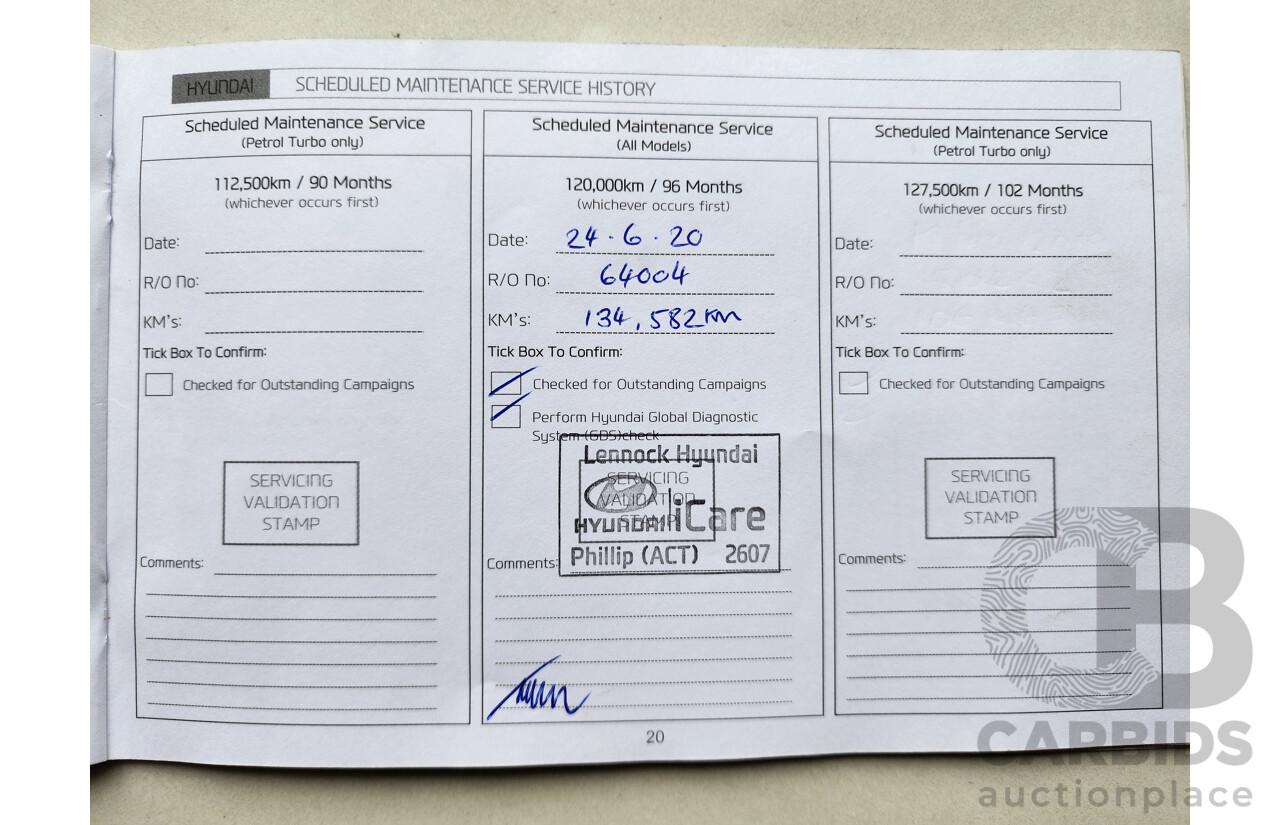 HYUNDAI SCHEDULED MAINTENANCE SERVICE HISTORY
Scheduled Maintenance Service
(Petrol Turbo only)
112,500km / 90 Months
(whichever occurs first)
Date:
R/O No:
KM's:
Tick Box To Confirm:
Checked for Outstanding Campaigns
SERVICING
VALIDATION
STAMP
Comments:
Scheduled Maintenance Service
(All Models)
120,000km / 96 Months
(whichever occurs first)
Date: 24·6·20
R/O No: 64004
KM's: 134,582km
Tick Box To Confirm:
Checked for Outstanding Campaigns
Perform Hyundai Global Diagnostic
System (GDS)check
Lennock Hyundai
SERVICING
VALIDATION
STAMP
HYUNDAI iCare
Phillip (ACT) 2607
Comments:
Scheduled Maintenance Service
(Petrol Turbo only)
127,500km / 102 Months
(whichever occurs first)
Date:
R/O No:
KM's:
Tick Box To Confirm:
Checked for Outstanding Campaigns
SERVICING
VALIDATION
STAMP
Comments:
20
CB
CARBIDS
auctionplace